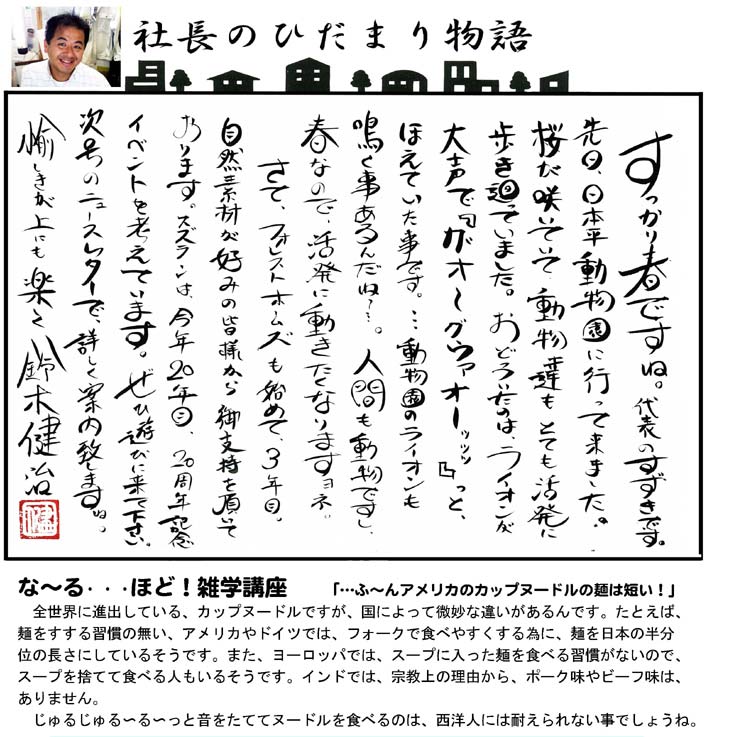 社長のひだまり物語
すっかり春ですね。代表のすずきです。
先日、日本平動物園に行って来ました。
桜が咲いていて動物達もとても活発に
歩き廻っていました。おどろいたのは、ライオンが
大声で『ガオ〜グウァオーッッッ』っと、
ほえていた事です。…動物園のライオンも
鳴く事あるんだね〜。人間も動物ですし、
春なので、活発に動きたくなりますョネ。
さて、フォレストホームズも始めて、3年目。
自然素材が好みの皆様から御支持を頂いて
おります。スズランは、今年20年目、20周年記念
イベントを考えています。ぜひ遊びに来て下さい。
次号のニュースレターで、詳しく案内致しますね。
愉しきが上にも楽しく 鈴木健治
な〜る・・・ほど！雑学講座 「…ふ〜んアメリカのカップヌードルの麺は短い！」
全世界に進出している、カップヌードルですが、国によって微妙な違いがあるんです。たとえば、
麺をすする習慣の無い、アメリカやドイツでは、フォークで食べやすくする為に、麺を日本の半分
位の長さにしているそうです。また、ヨーロッパでは、スープに入った麺を食べる習慣がないので、
スープを捨てて食べる人もいるそうです。インドでは、宗教上の理由から、ポーク味やビーフ味は、
ありません。
じゅるじゅる〜る〜っと音をたててヌードルを食べるのは、西洋人には耐えられない事でしょうね。